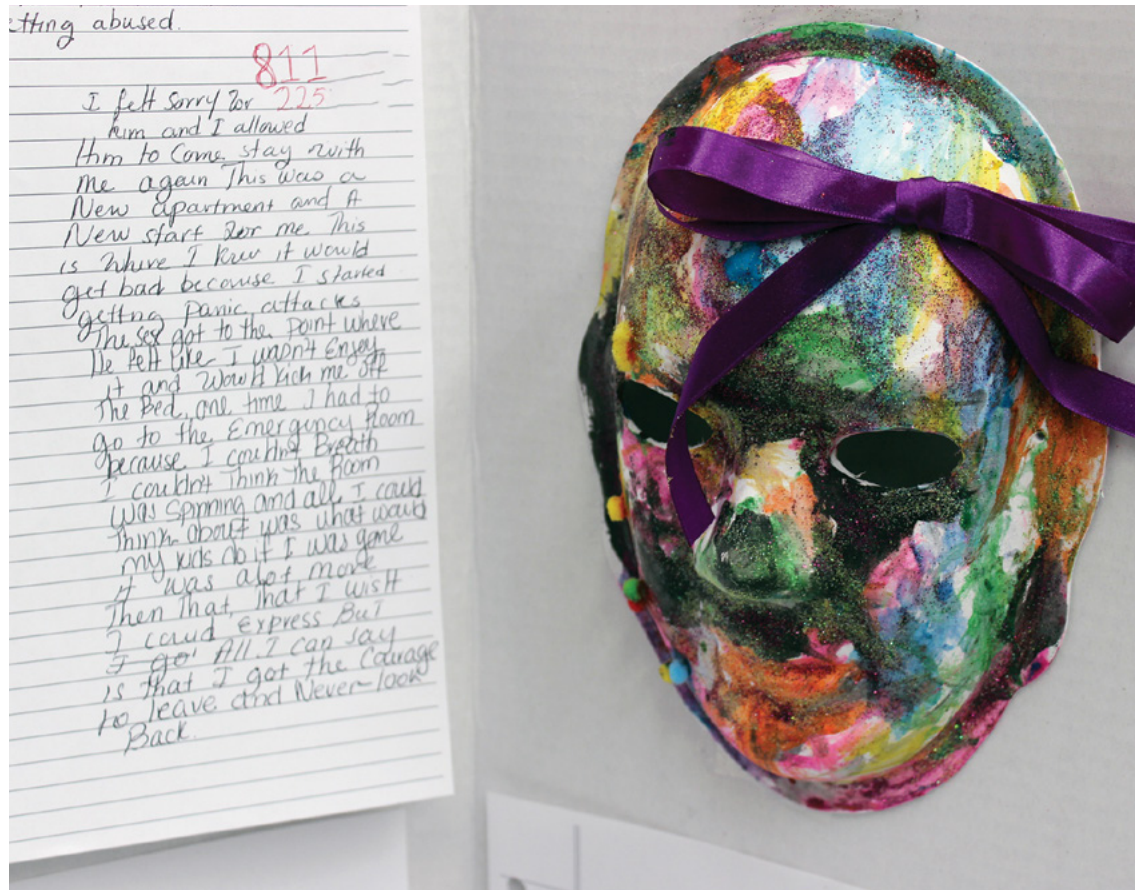 etting abused.
811
I felt sorry for 225
him and I allowed
Him to Come stay with
me again This was a
New apartment and A
New start for me This
is where I knew it would
get bad because I started
getting panic attacks
The sex got to the point where
He felt like I wasn't Enjoy
it and Would kick me off
The Bed, one time I had to
go to the Emergency Room
because I couldn't Breath
I couldn't Think The Room
was spinning and all I could
Think about was what would
my kids do if I was gone
it was alot more
Then That, That I wish
I could Express But
I go All I can say
is that I got the Courage
to leave and Never look
Back.